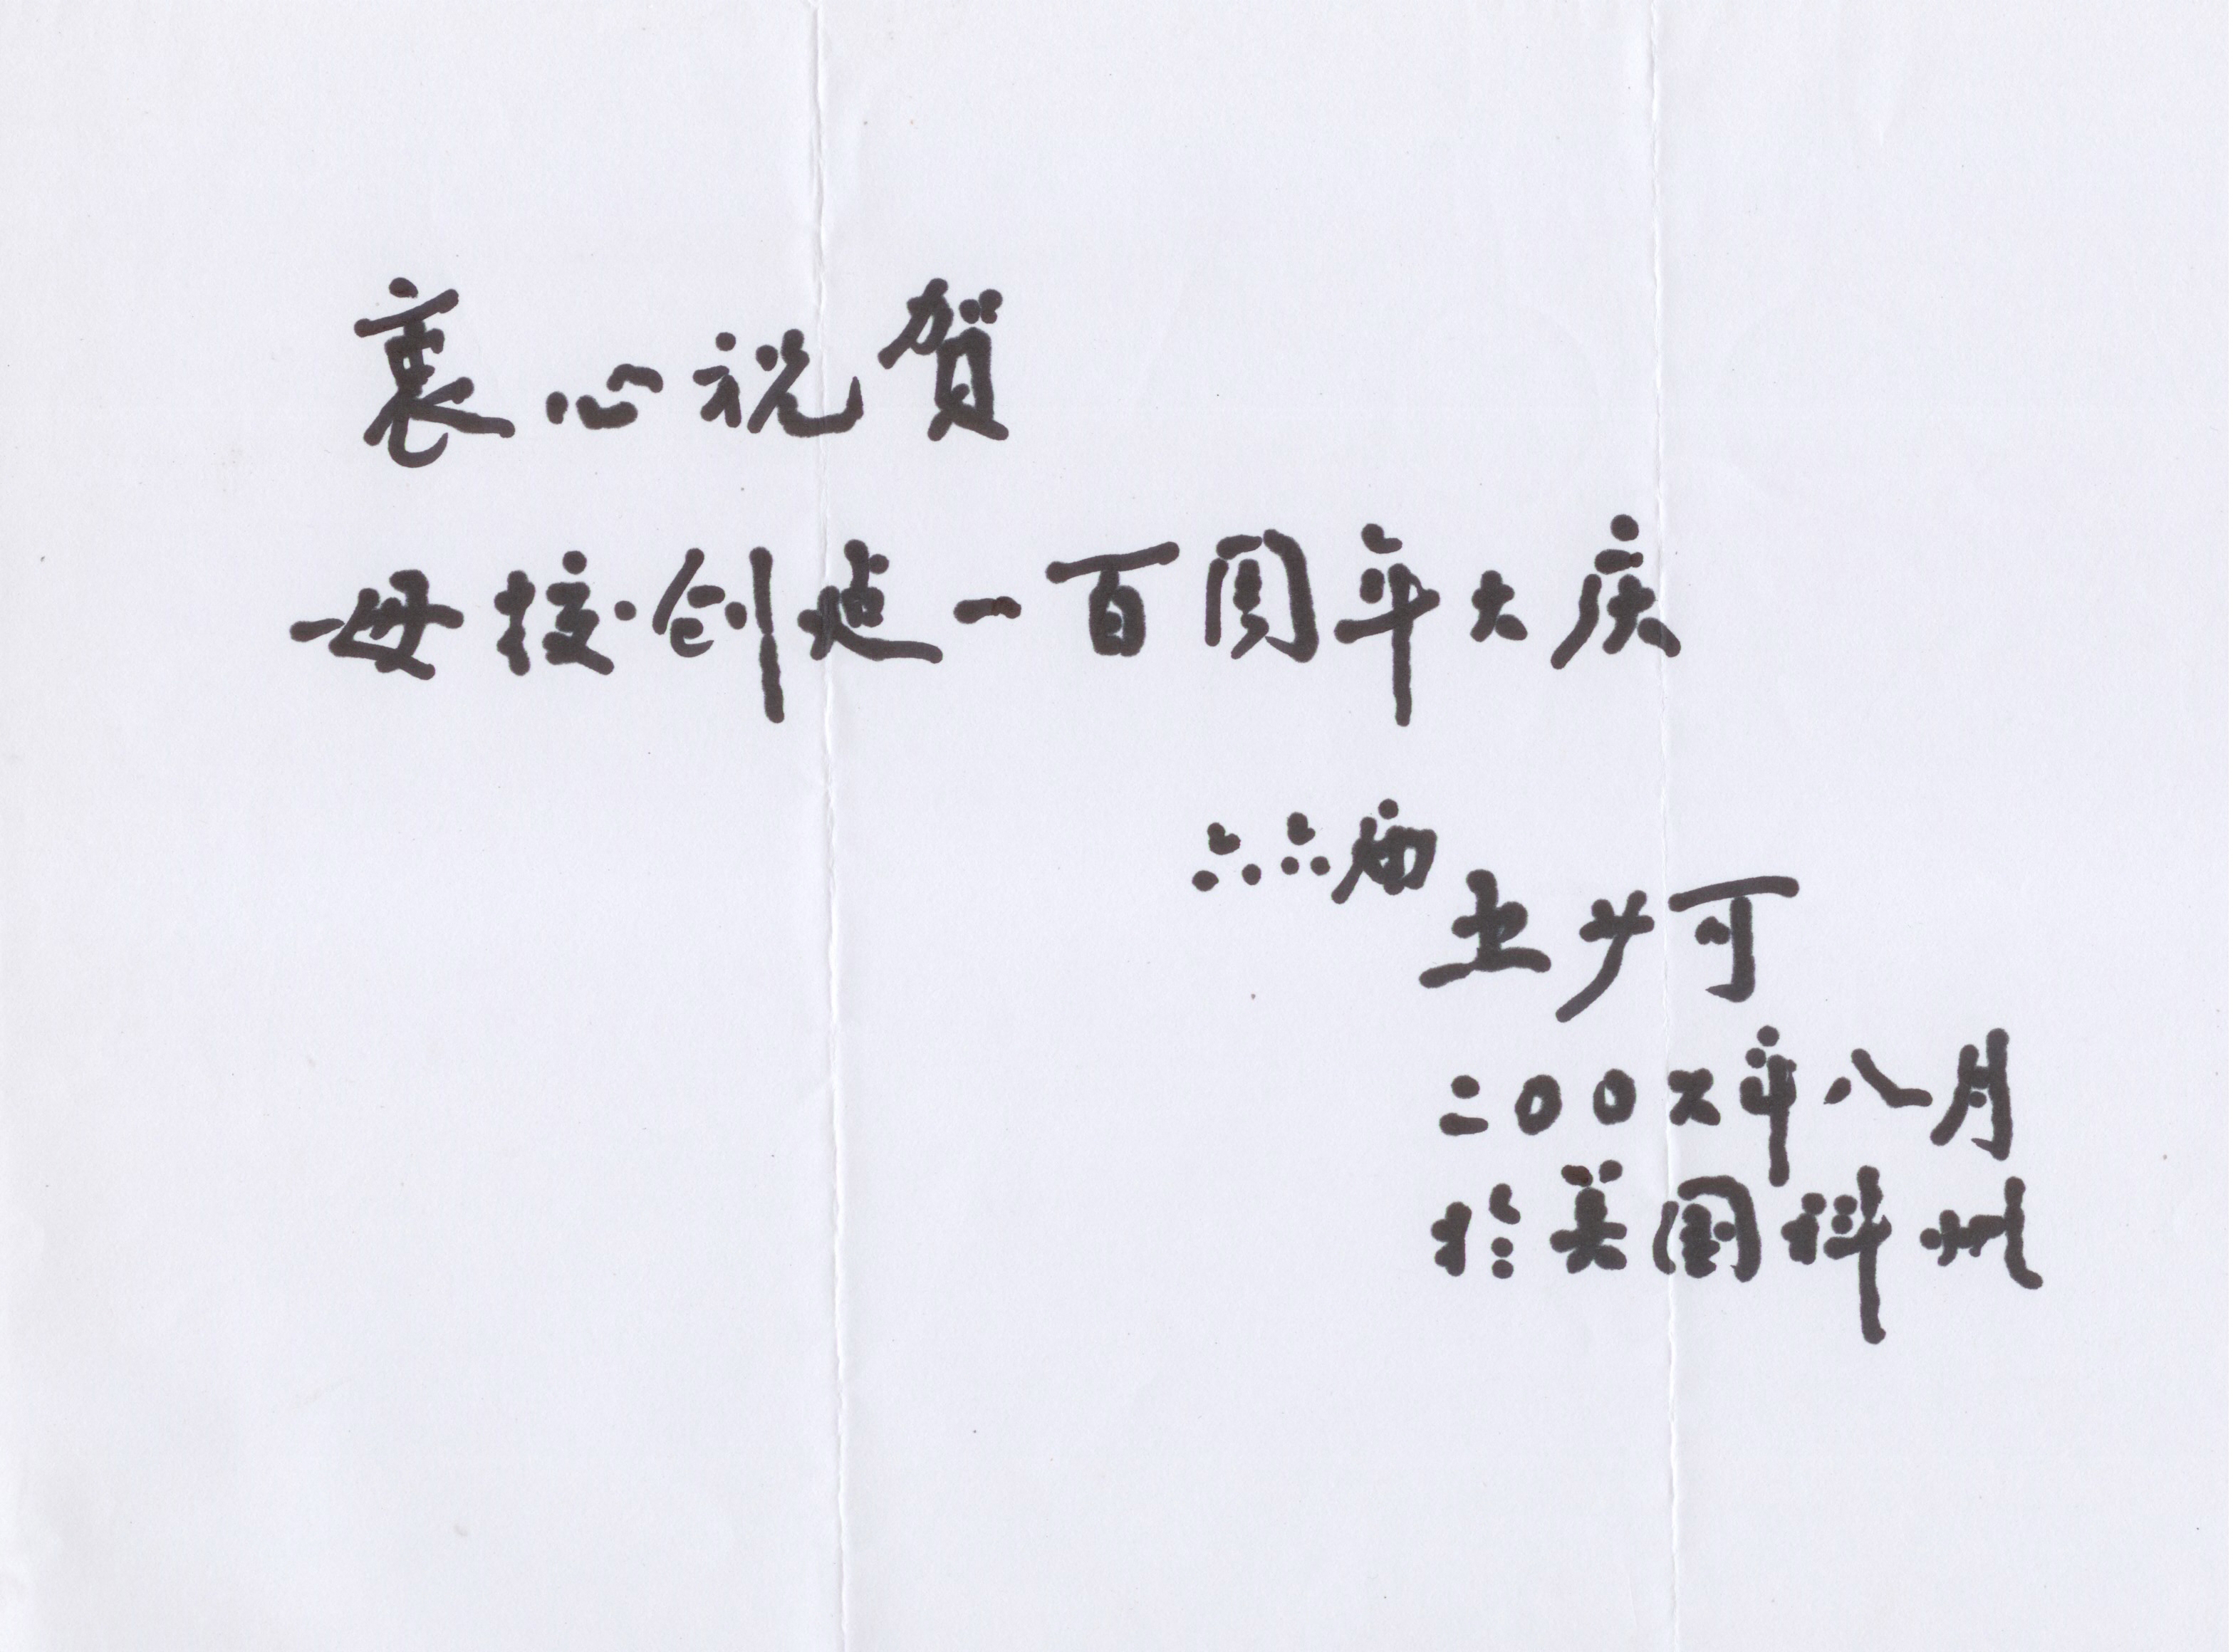 衷心祝贺
母校创建一百周年大庆
六六届
王少可
二00六年八月
於美国科州